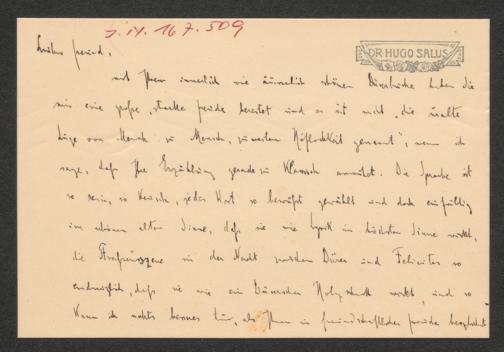 J.N. 167.509
DR. HUGO SALUS
Lieber Freund,
mit Ihrem innerlich wie äusserlich schönen Dürerbuche haben Sie
mir eine große, starke Freude bereitet und es ist nicht „die uralte
Lüge von Mensch zu Mensch, zuweilen Höflichkeit genannt“, wenn ich
sage, daß Ihre Erzählung geradezu klassisch anmutet. Die Sprache ist
so rein, so keusch, jedes Wort so bewußt gewählt und doch einfältig
im schönen alten Sinne, daß sie wie Lyrik im höchsten Sinne wirkt,
die Straßenszene in der Nacht zwischen Dürer und Felicitas so
daß sie wie ein Dürerscher Holzschnitt wirkt, und so
kann ich nichts besseres tun, als Ihnen in freundschaftlicher Freude